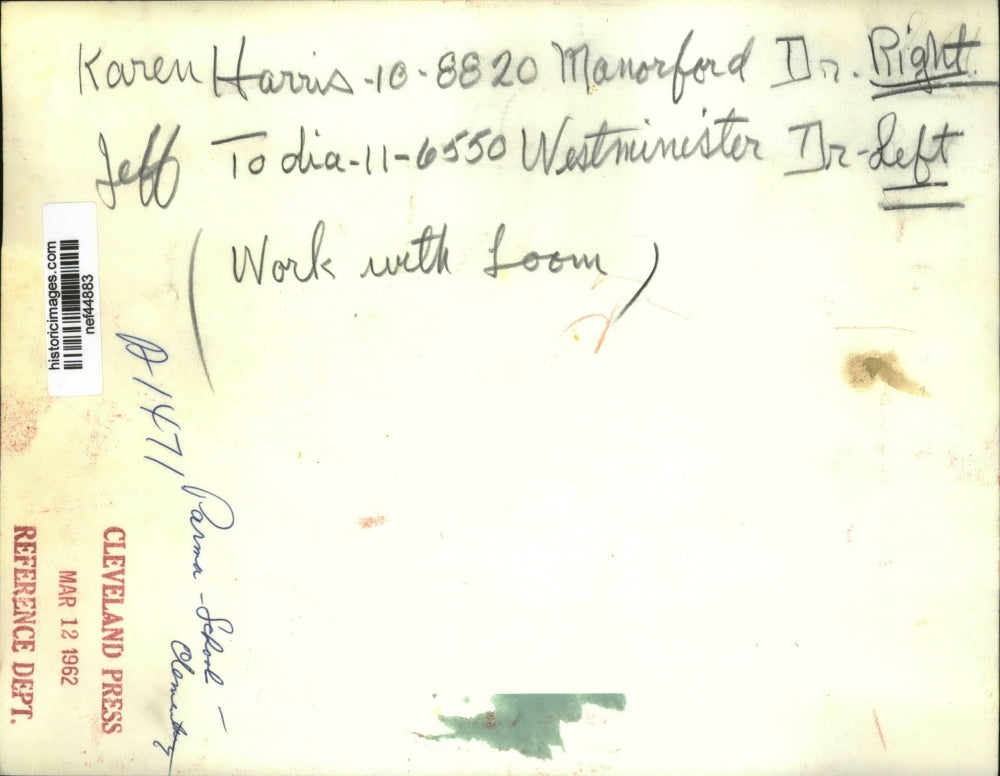 Karen Harris-10-8820 Manorford Dr. Right.
Jeff Todia-11-6550 Westminister Dr-Left
(Work with Loom)
historicimages.com
nef44883
A1471
Parma-School-
Elementary
CLEVELAND PRESS
MAR 12 1962
REFERENCE DEPT.